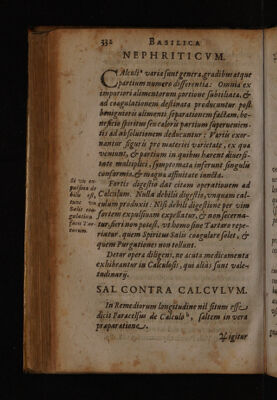 332 BASILICA
NEPHRITICVM.
CAlculi varia sunt genera, gradibus atque
partium numero differentia: Omnia ex
impuriori alimentorum portione subsiliata, &
ad coagulationem destinata producuntur post
benignioris alimenti separationem factam, be-
neficio spiritus seu caloris partium supervenien-
tis ad absolutionem deducuntur: Partis exor-
nantur figuris pro materiei varietate, ex qua
veniunt, & partium in quibus hærent diversi-
tate multiplici, symptomata inferunt singulis
conformia, & magna affinitate iuncta.
Fortis digestio dat citam operationem ad
Calculum. Nulla debilis digestio, unquam cal-
culum produxit: Nisi debili digestione per vim
fortem expulsivam expellatur, & non secerna-
tur, fieri non potest, ut homo sine Tartaro repe-
riatur, quem Spiritus Salis coagulare solet, &
quem Purgationes non tollunt.
Detur opera diligens, ne acuta medicamenta
exhibeantur in Calculosis, qui aliàs sunt vale-
tudinarij.
SAL CONTRA CALCVLVM.
In Remediorum longitudine nil situm esse
dicit Paracelsus de Calculo, saltem in vera
præparatione.
Ligitur